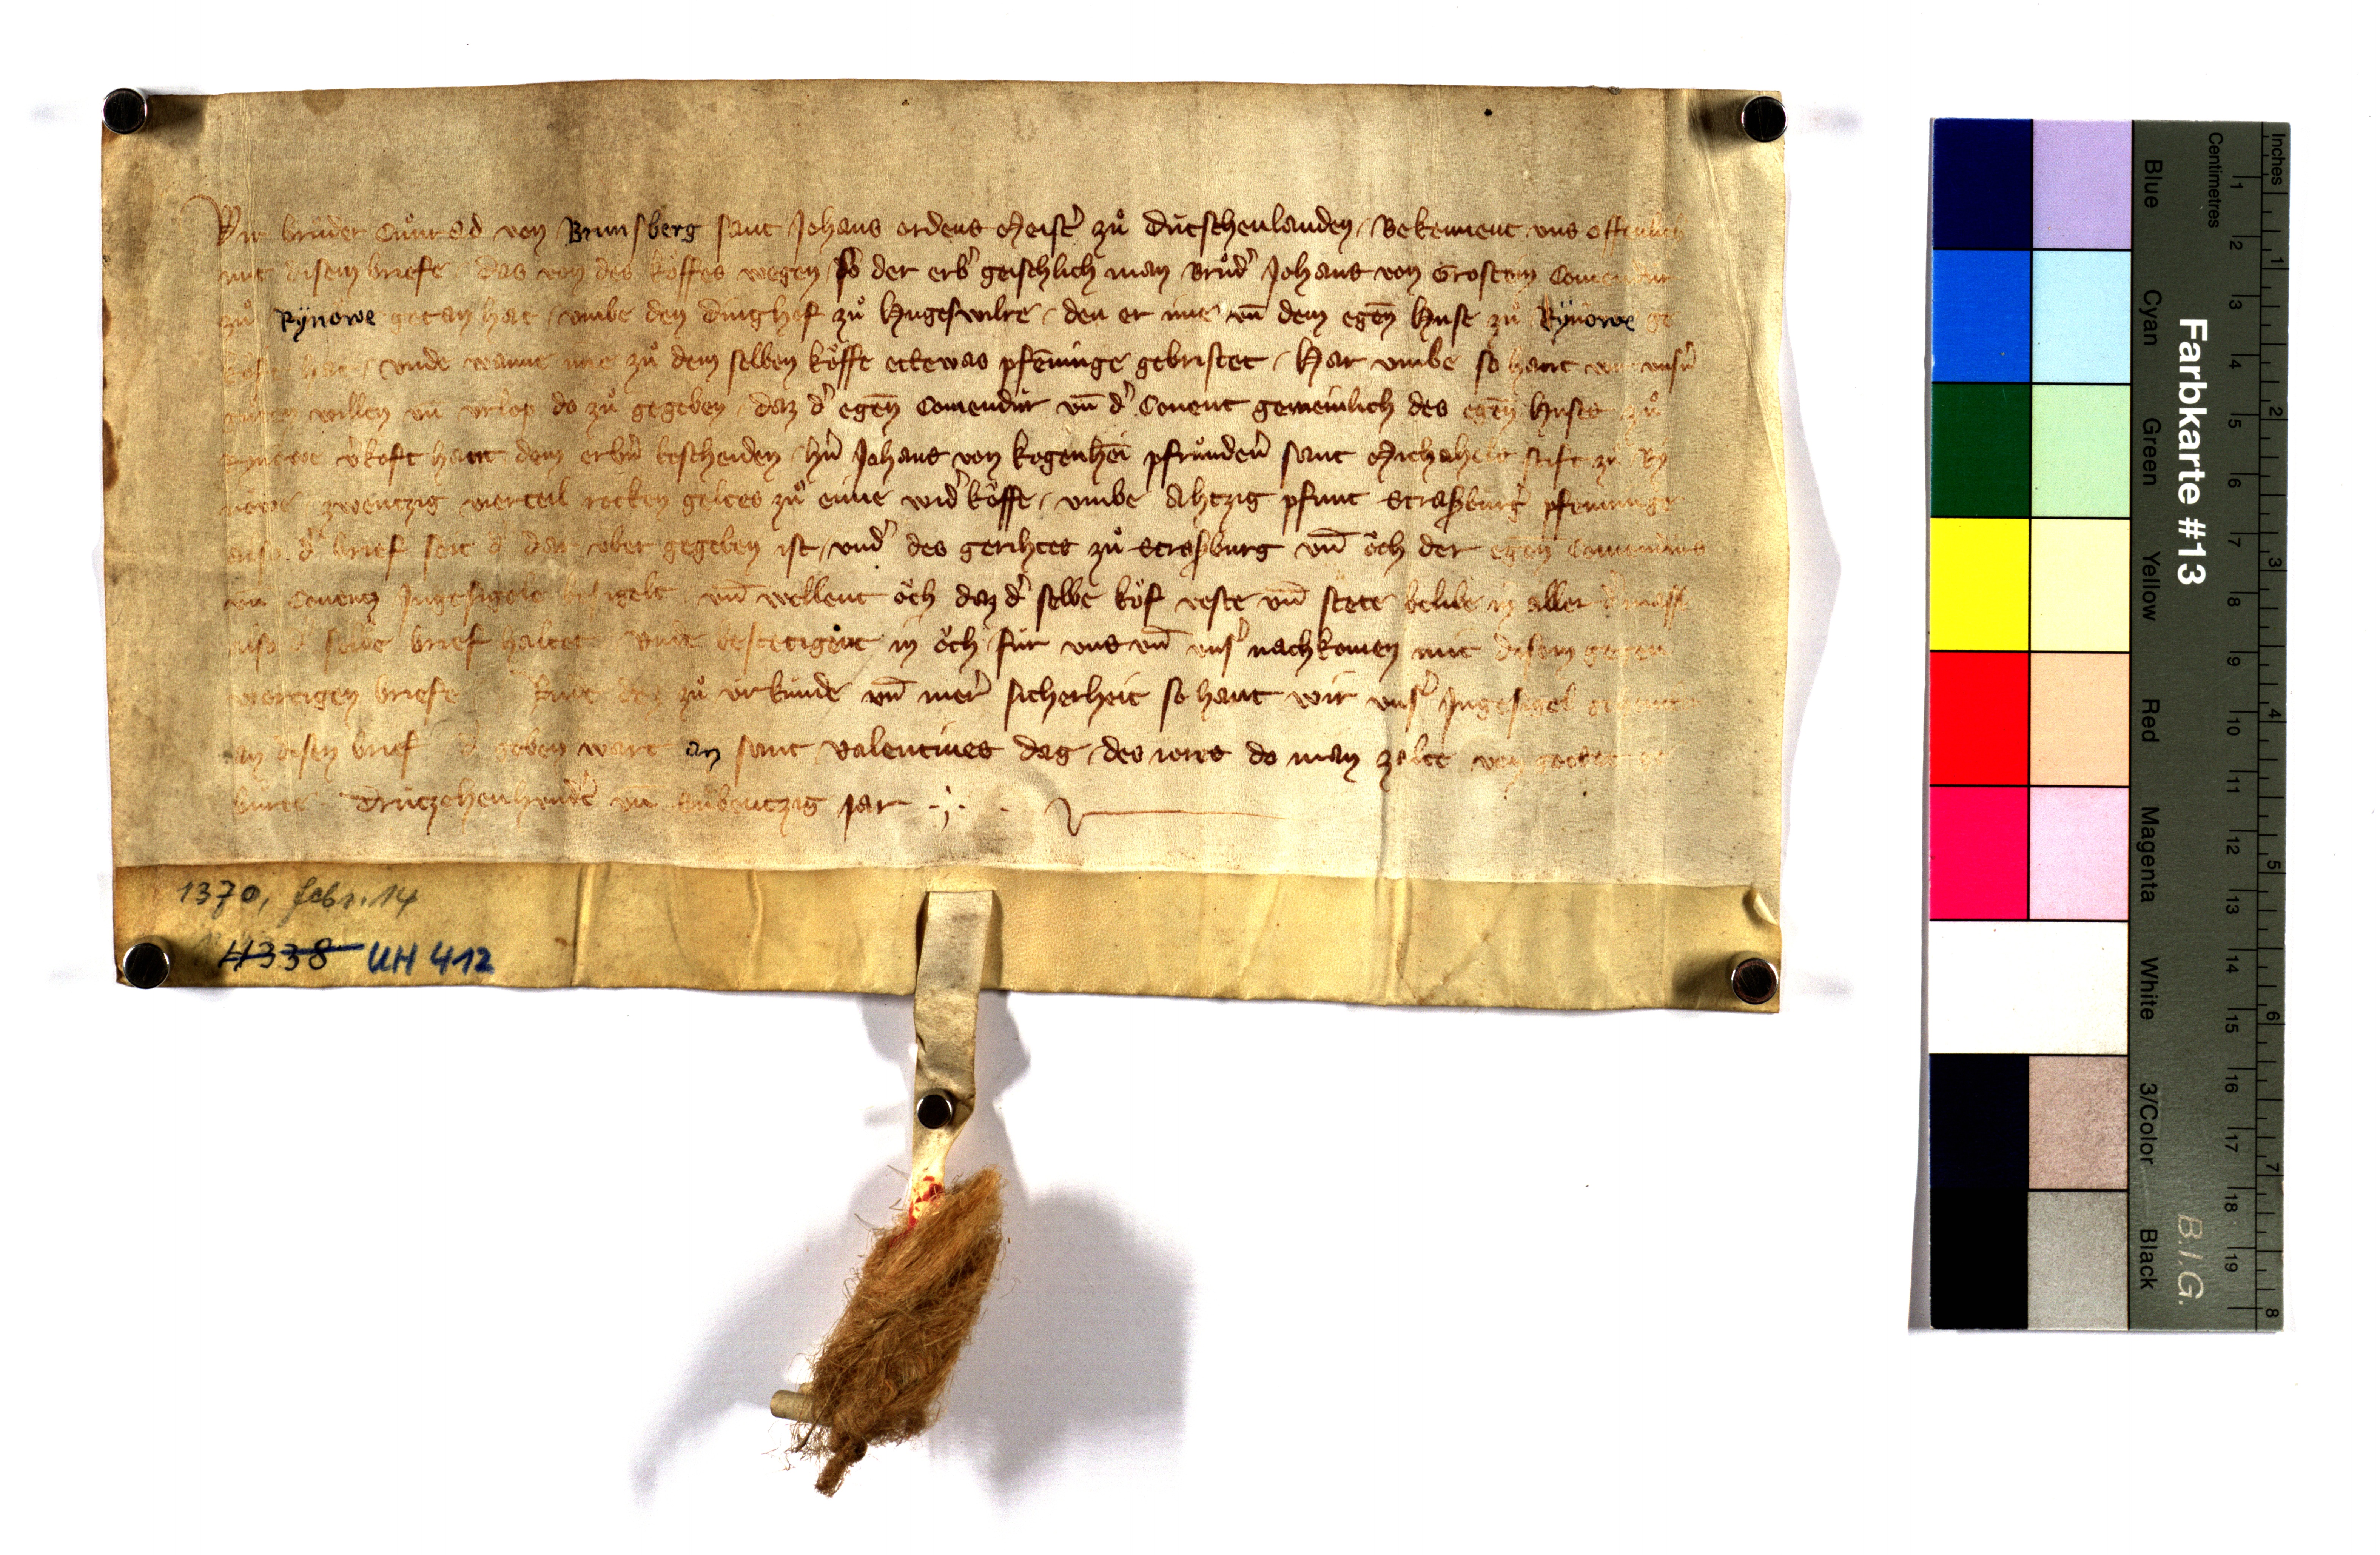 Wir bruder Cuͦnrad von Brunsberg sant Johans ordens meistˀ zuͦ dútschenlanden / Bekennent vns offenlich
mit disem briefe das von des koͮffes wegen so der erbˀ geischlich man Bruͦdˀ Johans von Grostein Comendúr
zuͦ Rÿnowe getan hat / vmbe den dinghof zuͦ hugeswilre / den er ime vn̄ dem egen̄ huse zuͦ Rÿnowe ge
koͮfet hat / vnde wanne ime zuͦ dem selben koͮffe ettewas pfenninge gebristet / Har vmbe so hant wir vnsˀn
guͦten willen vn̄ vrlop do zuͦ gegeben / daz dˀ egen̄ Comendúr vn̄ dˀ Couent gemeinlich des egen̄ huses zuͦ
Rynowe vˀkoft hant dem erbˀn bescheiden hˀn Johans von kogenhein̄ pfruͦndenˀ sant Michahels stift zuͦ Rÿ
nowe zwentzig vierteil rocken geltes zuͦ eime widˀkoͮffe / vmbe Ahtzig pfunt Straßburgˀ pfenninge
also dˀ brief seit dˀ dar vber gegeben ist / vndˀ des gerihtes zuͦ Straßburg vn̄ oͮch der egen̄ Comendúrs
vn̄ Couentz Ingesigele besigelt vn̄ wellent oͮch daz dˀ selbe koͮf veste vn̄ stete belibe in aller dˀ masse
also dˀ selbe brief haltet vnde bestetigent in oͮch fúr vns vn̄ vnsˀ nachkomen mit disem gegen
wertigen briefe Vnde des zuͦ vrkúnde vn̄ merˀ sicherheit so hant wir vnsˀ Ingesigel gehenket
an disen brief dˀ geben wart an sant valentines dag / des iores do man zalte von gottes ge
búrte drúzehenhundˀt vn̄ Sibentzig jar
1370, febr. 14
H338 UH 412
Farbkarte #13
B.I.G.
Inches
Centimetres
1 2 3 4 5 6 7 8
1 2 3 4 5 6 7 8 9 10 11 12 13 14 15 16 17 18 19
Blue
Cyan
Green
Yellow
Red
Magenta
White
3/Color
Black